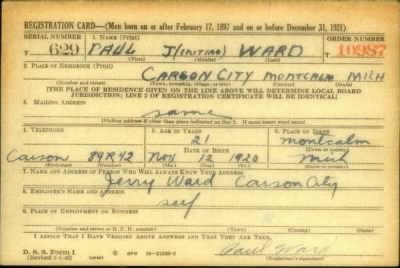 REGISTRATION CARD—(Men born on or after February 17, 1897 and on or before December 31, 1921)
SERIAL NUMBER 1. NAME (Print) ORDER NUMBER
T 629 PAUL J(INITIAL) WARD 10987
(First) (Middle) (Last)
2. PLACE OF RESIDENCE (Print)
CARSON CITY MONTCALM MICH
(Number and street) (Town, township, village, or city) (County) (State)
[THE PLACE OF RESIDENCE GIVEN ON THE LINE ABOVE WILL DETERMINE LOCAL BOARD
JURISDICTION; LINE 2 OF REGISTRATION CERTIFICATE WILL BE IDENTICAL]
3. MAILING ADDRESS
same
[Mailing address if other than place indicated on line 2. If same insert word same]
4. TELEPHONE 5. AGE IN YEARS 6. PLACE OF BIRTH
21 montcalm
DATE OF BIRTH (Town or county)
Carson 89R42 Nov 12 1920 Mich
(Exchange) (Number) (Mo.) (Day) (Yr.) (State or country)
7. NAME AND ADDRESS OF PERSON WHO WILL ALWAYS KNOW YOUR ADDRESS
Jerry Ward Carson City
8. EMPLOYER'S NAME AND ADDRESS
self
9. PLACE OF EMPLOYMENT OR BUSINESS
(Number and street or R. F. D. number) (Town) (County) (State)
I AFFIRM THAT I HAVE VERIFIED ABOVE ANSWERS AND THAT THEY ARE TRUE.
D. S. S. Form 1 GPO 16—21630-2 Paul Ward
(Revised 1-1-42) (Registrant's signature)